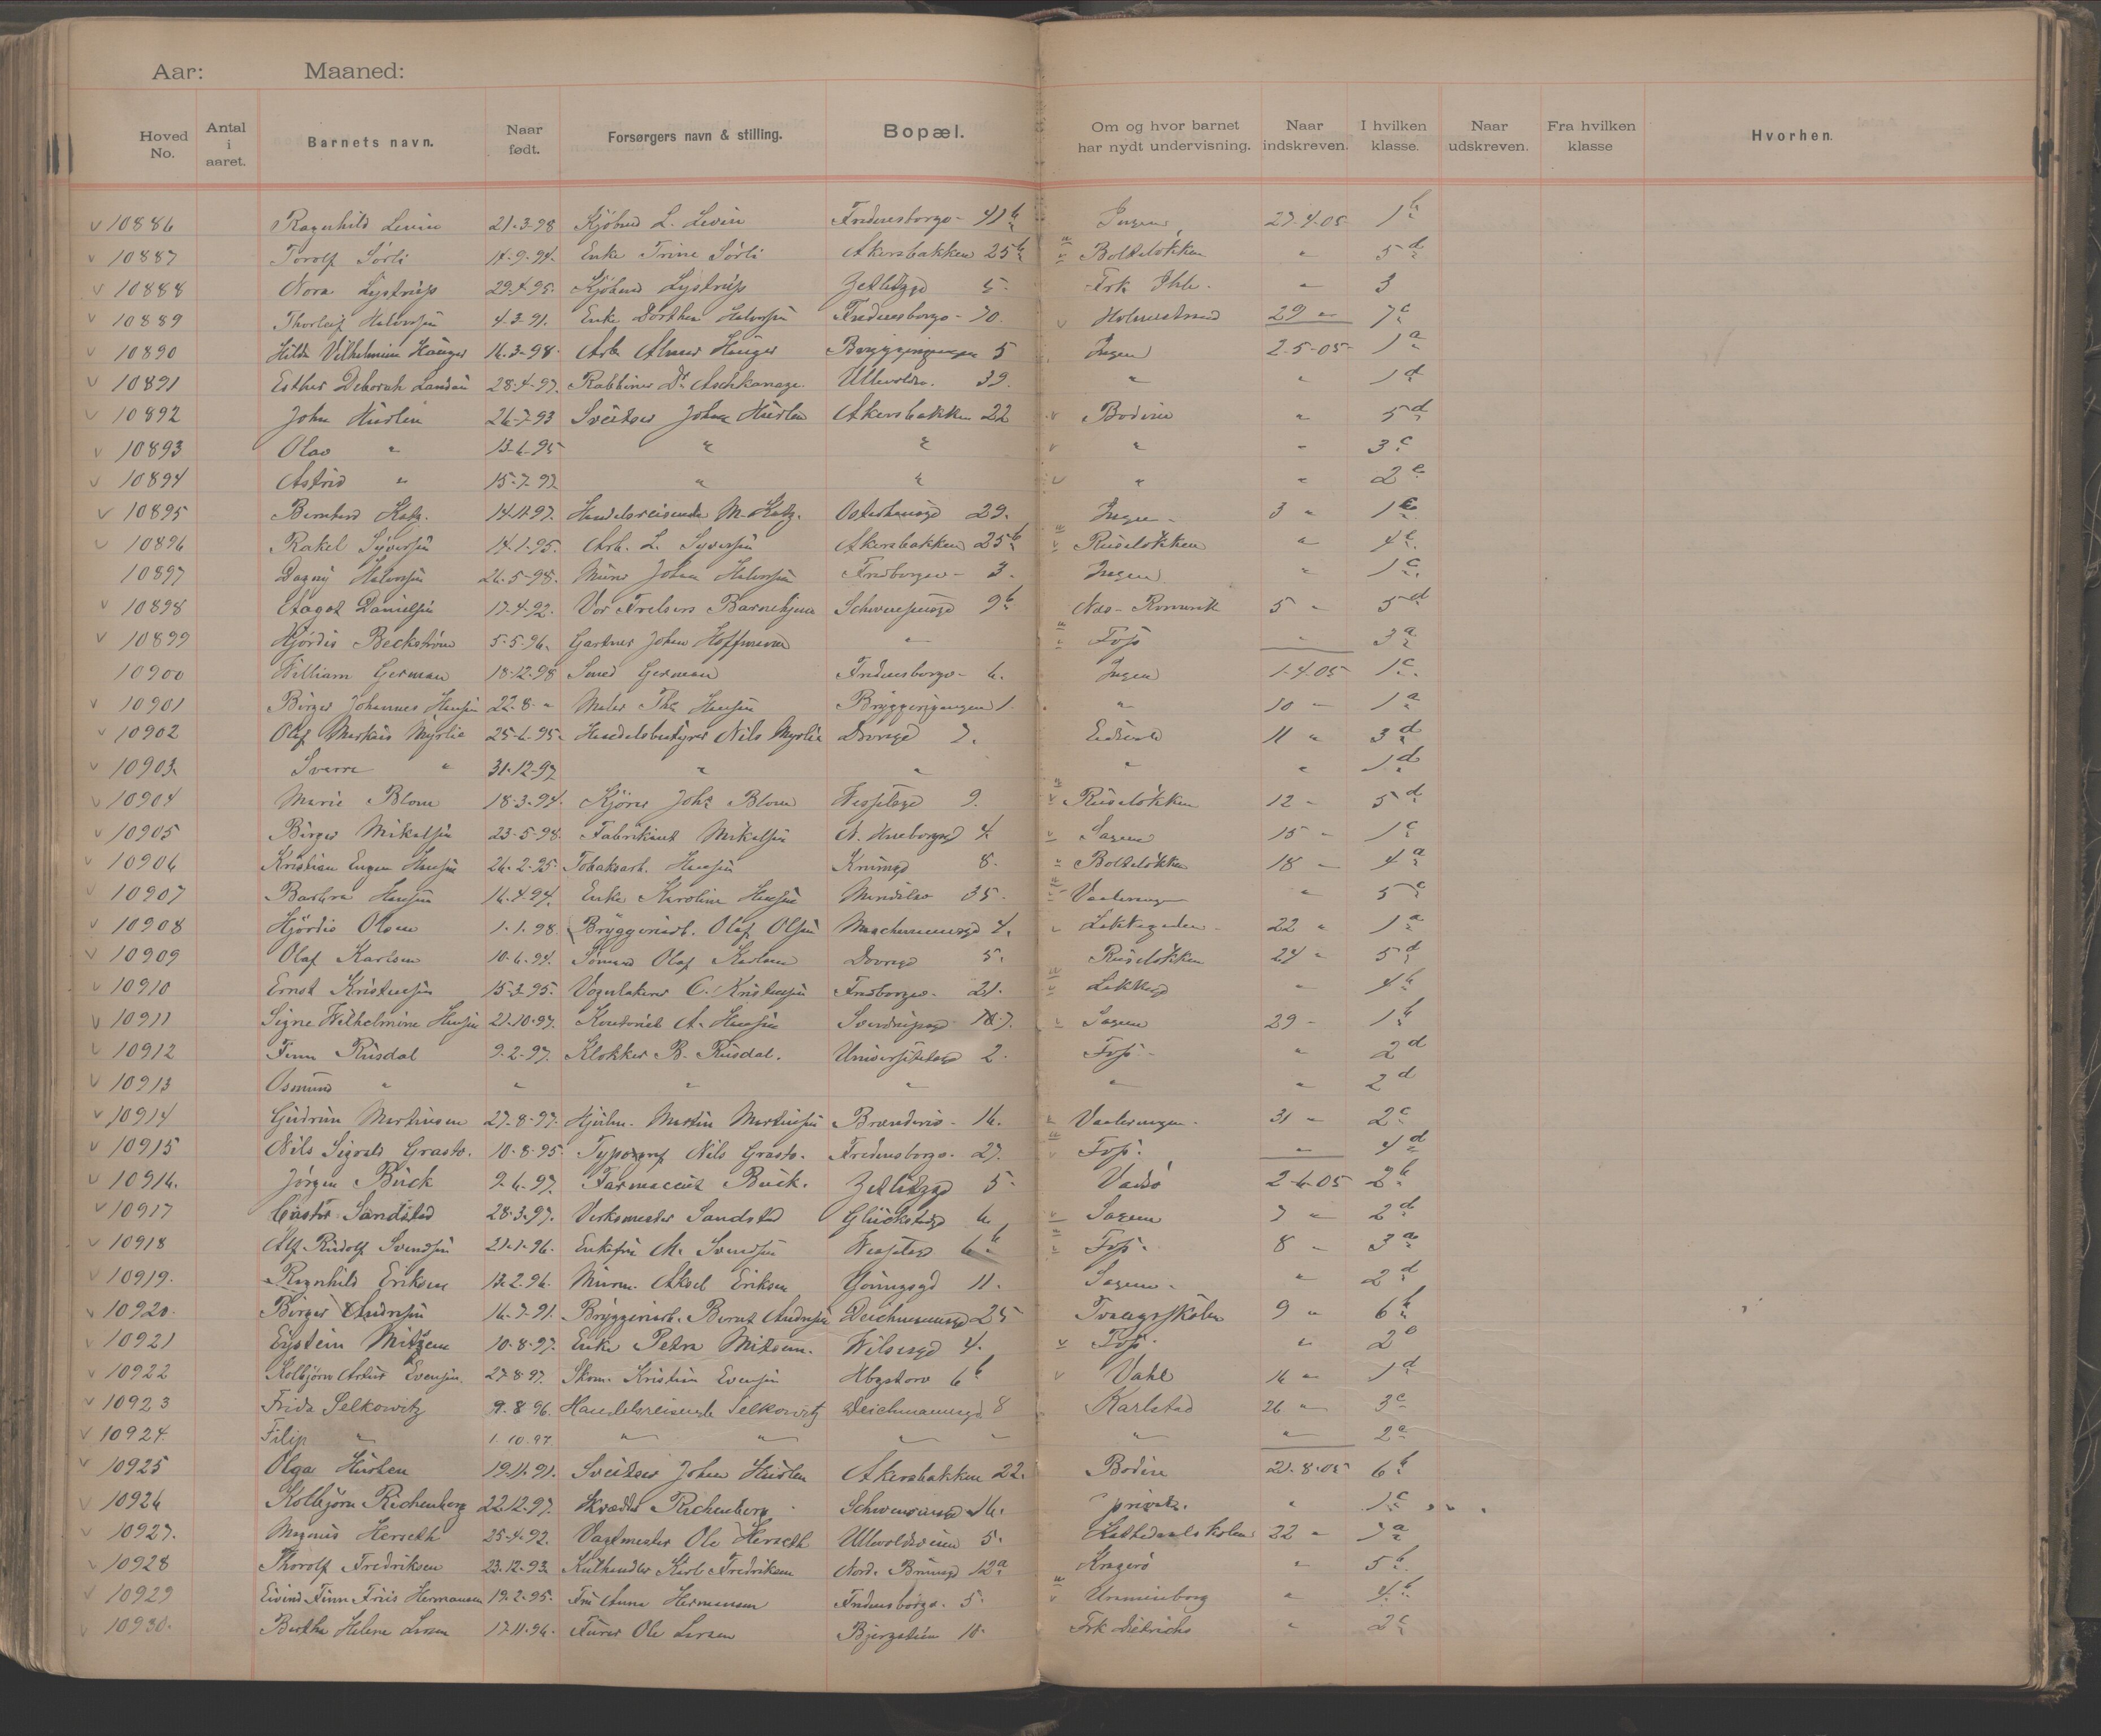 Aar: Maaned:
Hoved No. Antal i aaret. Barnets navn. Naar født. Forsørgers navn & stilling. Bopæl. Om og hvor barnet har nydt undervisning. Naar indskreven. I hvilken klasse. Naar udskreven. Fra hvilken klasse Hvorhen.
v 10886 Ragnhild Levin 21-3-98 Kjøbmd L. Levin 41 b Ingen 27-4-05 1 b
v 10887 Torolf Sörli 14-9-94. Enke Trine Sörli Akersbakken 25 b Bolteløkken " 5 d
v 10888 Nora Lystrup 29.4.95. Kjøbmd Lystrup Zetlitzgd 5. Frk Ihle. " 3
v 10889 Thorleif Halvorsen 4-3-91. Enke Dorthea Halvorsen Fredensborgv- 70. v Holmestrand 29 " 7 c
v 10890 Hilda Vilhelmine Hauger 16-3-98. Arb. Hauger Bryggerigangen 5 Ingen 2-5-05- 1 a
v 10891 Esther Deborah Landau 28-4-97. Rabbiner Dr. Aschkanaze. Ullevoldsv. 39. " " 1 d
v 10892 John Hurlen 26-7-93 Sveitser Johan Hurlen Akersbakken 22 v Bodin " 5 d
v 10893 Olav " 13-6-95 " " v " " 3 c
v 10894 Astrid " 15-7-97 " " v " " 2 e
v 10895 Bernhard Katz. 14-11-97. Handelsreisende M. Katz. Osterhausgd 29. Ingen 3 " 1
v 10896 Rakel Syversen 14-1-95. Arb. L. Syversen Akersbakken 25 b v Ruseløkken " 4
10897 Dagny Halvorsen 26-5-98. Murer Johan Halvorsen 3. Ingen " 1 c
v 10898 Aagot Danielsen 17-4-92. Vor Frelsers Barnehjem Schwensensgd 9 b Næs - Romerik 5 " 5 d
v 10899 Hjördis Beckström 5-5-96. Gartner Johan Hoffmann " Foss " 3 a
10900 William German 18-12-98 Smed German Fredensborgv- 6. Ingen 1-4-05 1 c
v 10901 Birger Johannes Hansen 22-8-" Maler Ths Hansen Bryggerigangen 1. " 10 " 1 a
v 10902 Olaf Markus Myrlie 25-6-95. Handelsbestyrer Nils Myrlie Dovregd 7. Eidsvold 11 " 3 d
v 10903. Sverre " 31-12-97 " " " " 1 d
v 10904 Marie Blom 18-3-94. Kjører Johs Blom Wesselsgd 9. v Ruseløkken 12 " 5 d
v 10905 Birger Mikalsen 23-5-98. Fabrikant Mikalsen 4. v Sagene 15 " 1 c
v 10906 Kristian Eugen Hansen 26-2-95. Tobaksarb. Hansen Krumgd 8. v Bolteløkken 18 " 4 a
v 10907 Barbra Hansen 16-4-94. Enke Karoline Hansen 35. Vaalerengen " 5 c
v 10908 Hjördis Olsen 1-1-98. Bryggeriarb. Olaf Olsen 4. v Lakkegaden - 22 " 1 a
v 10909 Olaf Karlsen 10-6-94. Sömand Olaf Karlsen Dovregd 5. Ruseløkken 24 " 5 d
v 10910 Ernst Kristensen 15-3-95. Vognlakerer C. Kristensen 21. Lakkegd " 4 b
v 10911 Signe Wilhelmine Hansen 21-10-97. Kontorist A. Hansen Sverdrupsgd v Sagene 29 - 1 b
v 10912 Finn Rusdal 9-2-97. Klokker B. Rusdal. Universitetsgd 2. Foss - " 2 d
v 10913 Osmund " " " " " " 2 d
v 10914 Gudrun Martinsen 27-8-97. Martin Martinsen 16. Vaalerengen. 31 " 2 c
v 10915 Nils Sigvald Grastv. 10-8-95 Typograf Nils Grastv. Fredensborgv. 27. Foss. " 4 d
v 10916. Jörgen Buck 9-6-97. Farmaceut Buck. Zetlitzgd 5. Vadsö 2-6-05 2 b
v 10917 Sandstad 28-3-97. Verksmester Sandstad Glückstadsgd 6. v Sagene 7 " 2 d
v 10918 Alf Rudolf Svendsen 21-1-96. Enkefru M. Svendsen Wesselsgd 6 b Foss. 8 " 3 a
v 10919. Ragnhild Eriksen 12-2-96. Murer Aksel Eriksen 11. Sagene. " 2 d
v 10920. Birger Andresen 16-7-91. Bryggeriarb. Bernt Andresen Deichmannsgd 25 Tvangsskolen 9 " 6 b
v 10921 Eystein Mitzem 10-8-97. Enke Petra Mitzem. Wilsesgd 4. v Foss. " 2
v 10922 Kolbjørn Artur Evensen. 27-8-97. Skom. Kristian Evensen 6 b v Vahl 16 " 1 d
v 10923 Frida Selkowitz 9. 8 96. Handelsreisende Selkowitz Deichmannsgd 8 Karlstad 26 " 3 c
v 10924. Filip " 1. 10. 97 " " " " " " 2 c
v 10925 Olga Hurlen 19-11-91. Sveitser Johan Hurlen Akersbakken 22. Bodin 21-8-05 6 b
v 10926 Kolbjørn Richenberg 22.12.97. Skrædder Richenberg Schwensensgd 16. privat. " 1 c
v 10927. Magnus Herseth 25-4-92. Vagtmester Ole Herseth Ullevoldsveien 5. Kathedralskolen 22 " 7 a
v 10928 Thorolf Fredriksen 23-12-93. Kulhandler Karl Fredriksen Nord. Brungd 12 a Kragerö " 5 b
v 10929 Eivind Finn Friis Hermansen 19-2-95. Fru Anna Hermansen Fredensborgv. 5. v Uranienborg " 4 b
v 10930. Bertha Helene Larsen 17-11-96. Furer Ole Larsen Bjergstien 10. Frk Dietrichs " 2 c